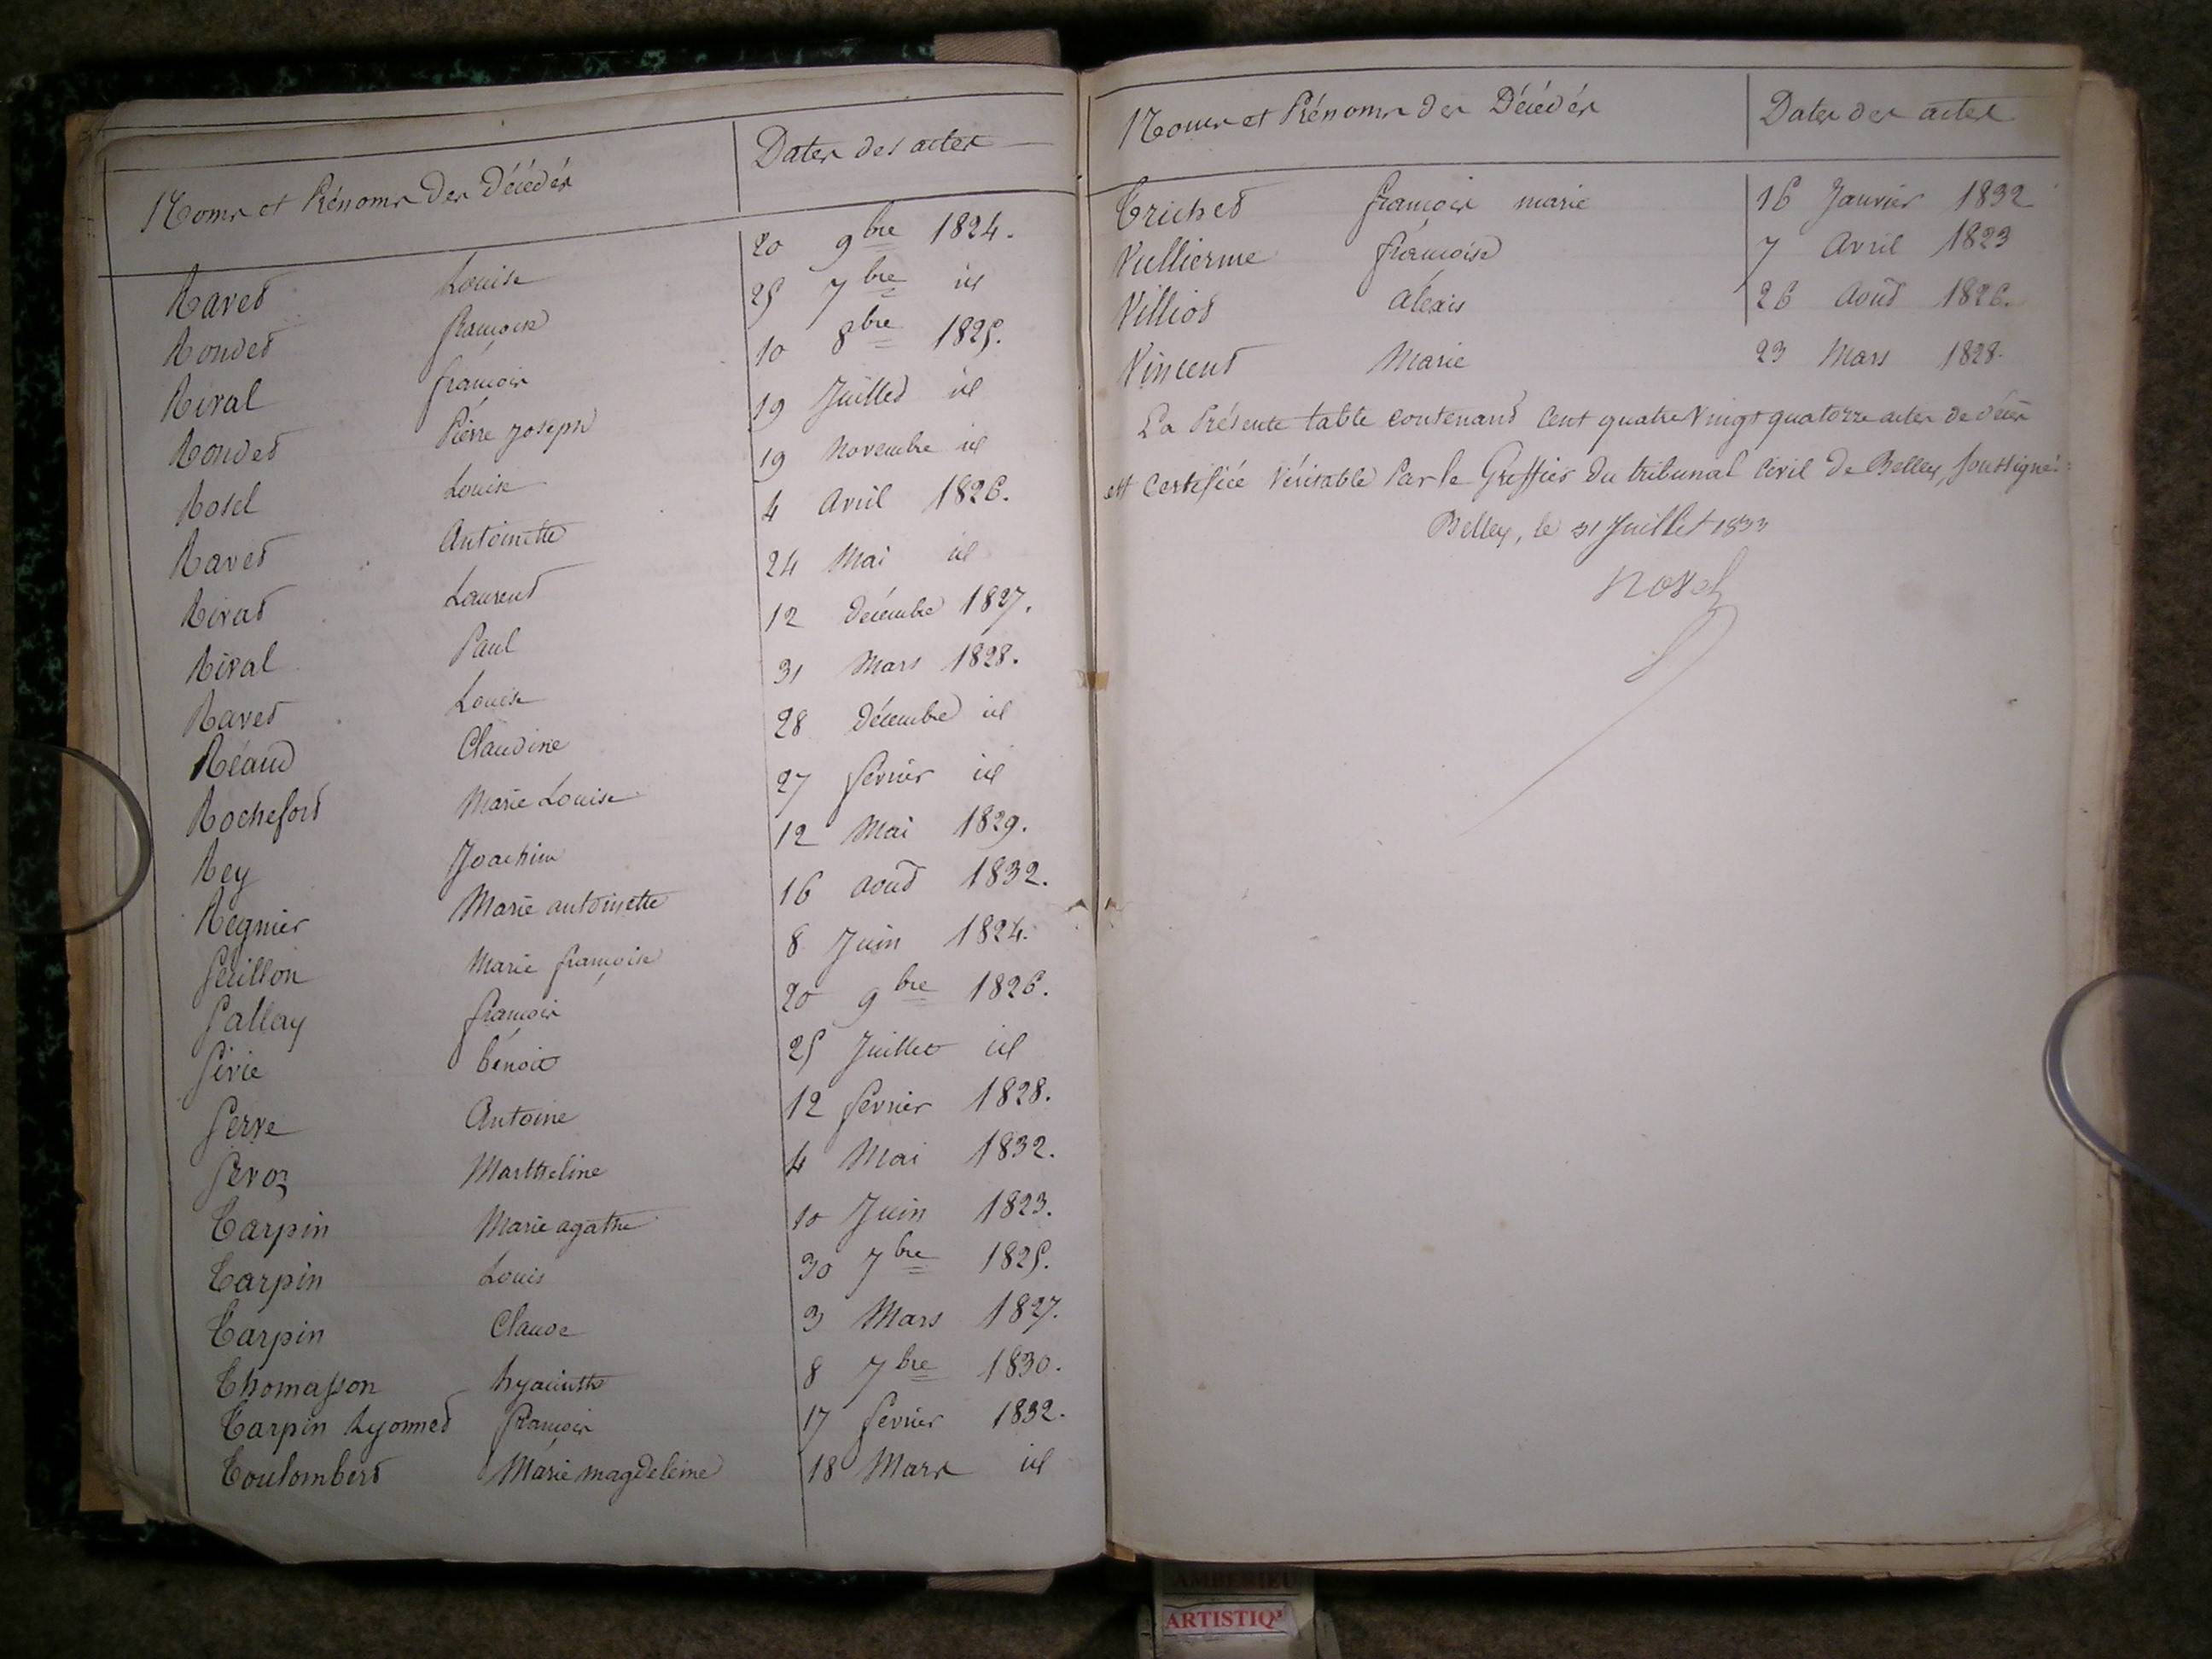 Noms et Prénoms des Décédés Dates des actes
Ravet Louise 20 9bre 1824.
Rondet françoise 25 7bre id
Rival françois 10 8bre 1825.
Rondet Piérre joseph 19 Juillet id
Rosel Louise 19 Novembre id
Ravet Antoinette 4 Avril 1826.
Rivat Laurent 24 Mai id
Rival Paul 12 Décembre 1827.
Ravet Louise 31 Mars 1828.
Réaud Claudine 28 Décembre id
Rochefort Marie Louise 27 fevrier id
Rey Joachim 12 Mai 1829.
Regnier Marie antoinette 16 aout 1832.
Seuillon Marie françoise 8 Juin 1824.
Sallay françois 20 9bre 1826.
Sivie bénoit 25 Juillet id
Serve Antoine 12 fevrier 1828.
Servoz Martheline 4 Mai 1832.
Tarpin Marie agathe 10 Juin 1823.
Tarpin Louis 30 7bre 1825.
Tarpin Claude 3 Mars 1827.
Thomasson hyacinthe 8 7bre 1830.
Tarpin Lyonnet françois 17 fevrier 1832.
Toulombert Marie magdeleine 18 Mars id
Noms et Prénoms des Décédés Dates des actes
Trichet françois marie 16 Janvier 1832
Vullierme françoise 7 Avril 1823
Villiot aléxis 26 Aout 1826.
Vincent Marie 23 Mars 1828.
La Présente table contenant Cent quatre Vingt quatorze actes de décès
est Certifiée Véritable Par le Greffier du tribunal Civil de Belley, soussigné:
Belley, le 31 Juillet 1833
AMBERIEU
ARTISTIQ